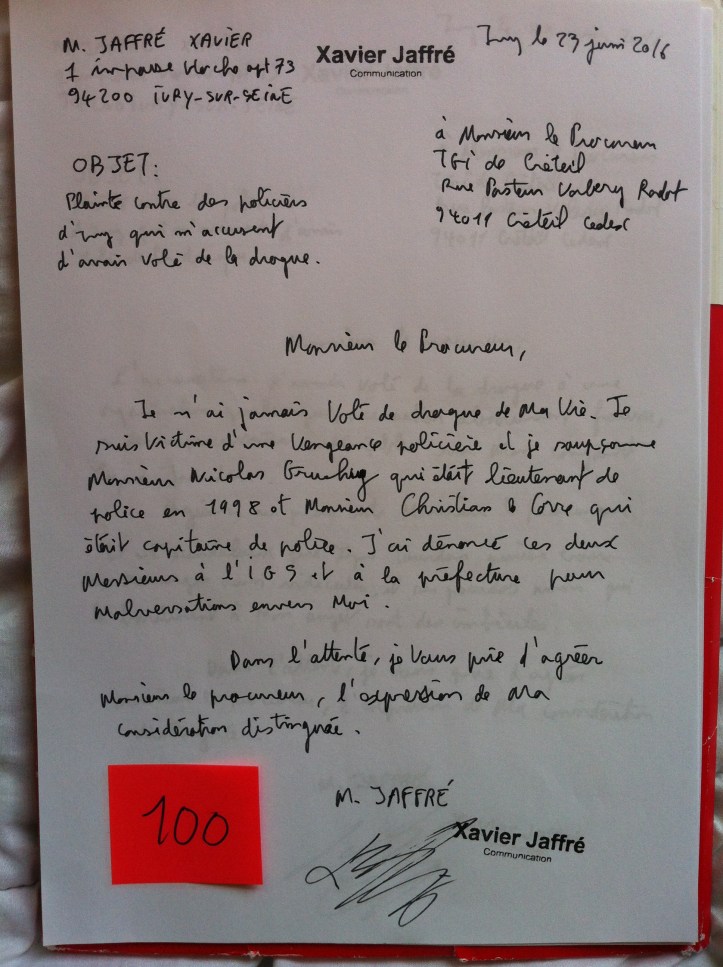 M. JAFFRÉ XAVIER
1 impasse apt 73
94200 IVRY-SUR-SEINE
Xavier Jaffré
Communication
Ivry le 23 juin 2016
à Monsieur le Procureur
TGI de Créteil
Rue Pasteur Valery Radot
94011 Créteil Cedex
OBJET:
Plainte contre des policiers
d'Ivry qui m'accusent
d'avoir volé de la drogue.
Monsieur le Procureur,
Je n'ai jamais volé de drogue de ma vie. Je
suis victime d'une vengeance policière et je soupçonne
Monsieur Nicolas qui était lieutenant de
police en 1998 et Monsieur Christian qui
était capitaine de police. J'ai dénoncé ces deux
Messieurs à l'IGS et à la préfecture pour
malversations envers moi.
Dans l'attente, je vous prie d'agréer
Monsieur le procureur, l'expression de ma
considération distinguée.
M. JAFFRÉ
Xavier Jaffré
Communication
100